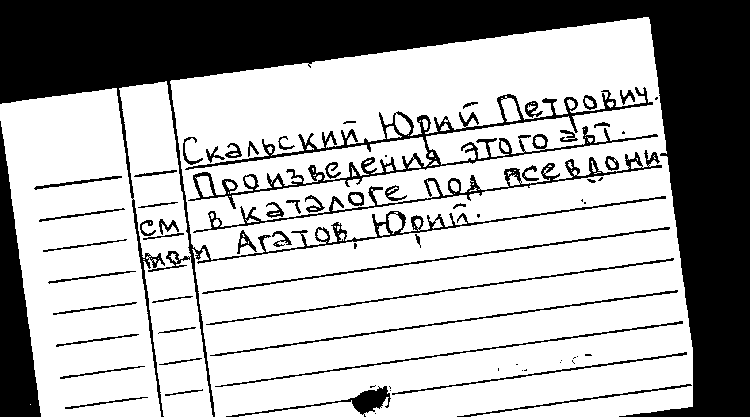 Скальский, Юрий Петрович.
Произведения этого авт.
см. в каталоге под псевдони-
мом Агатов, Юрий.